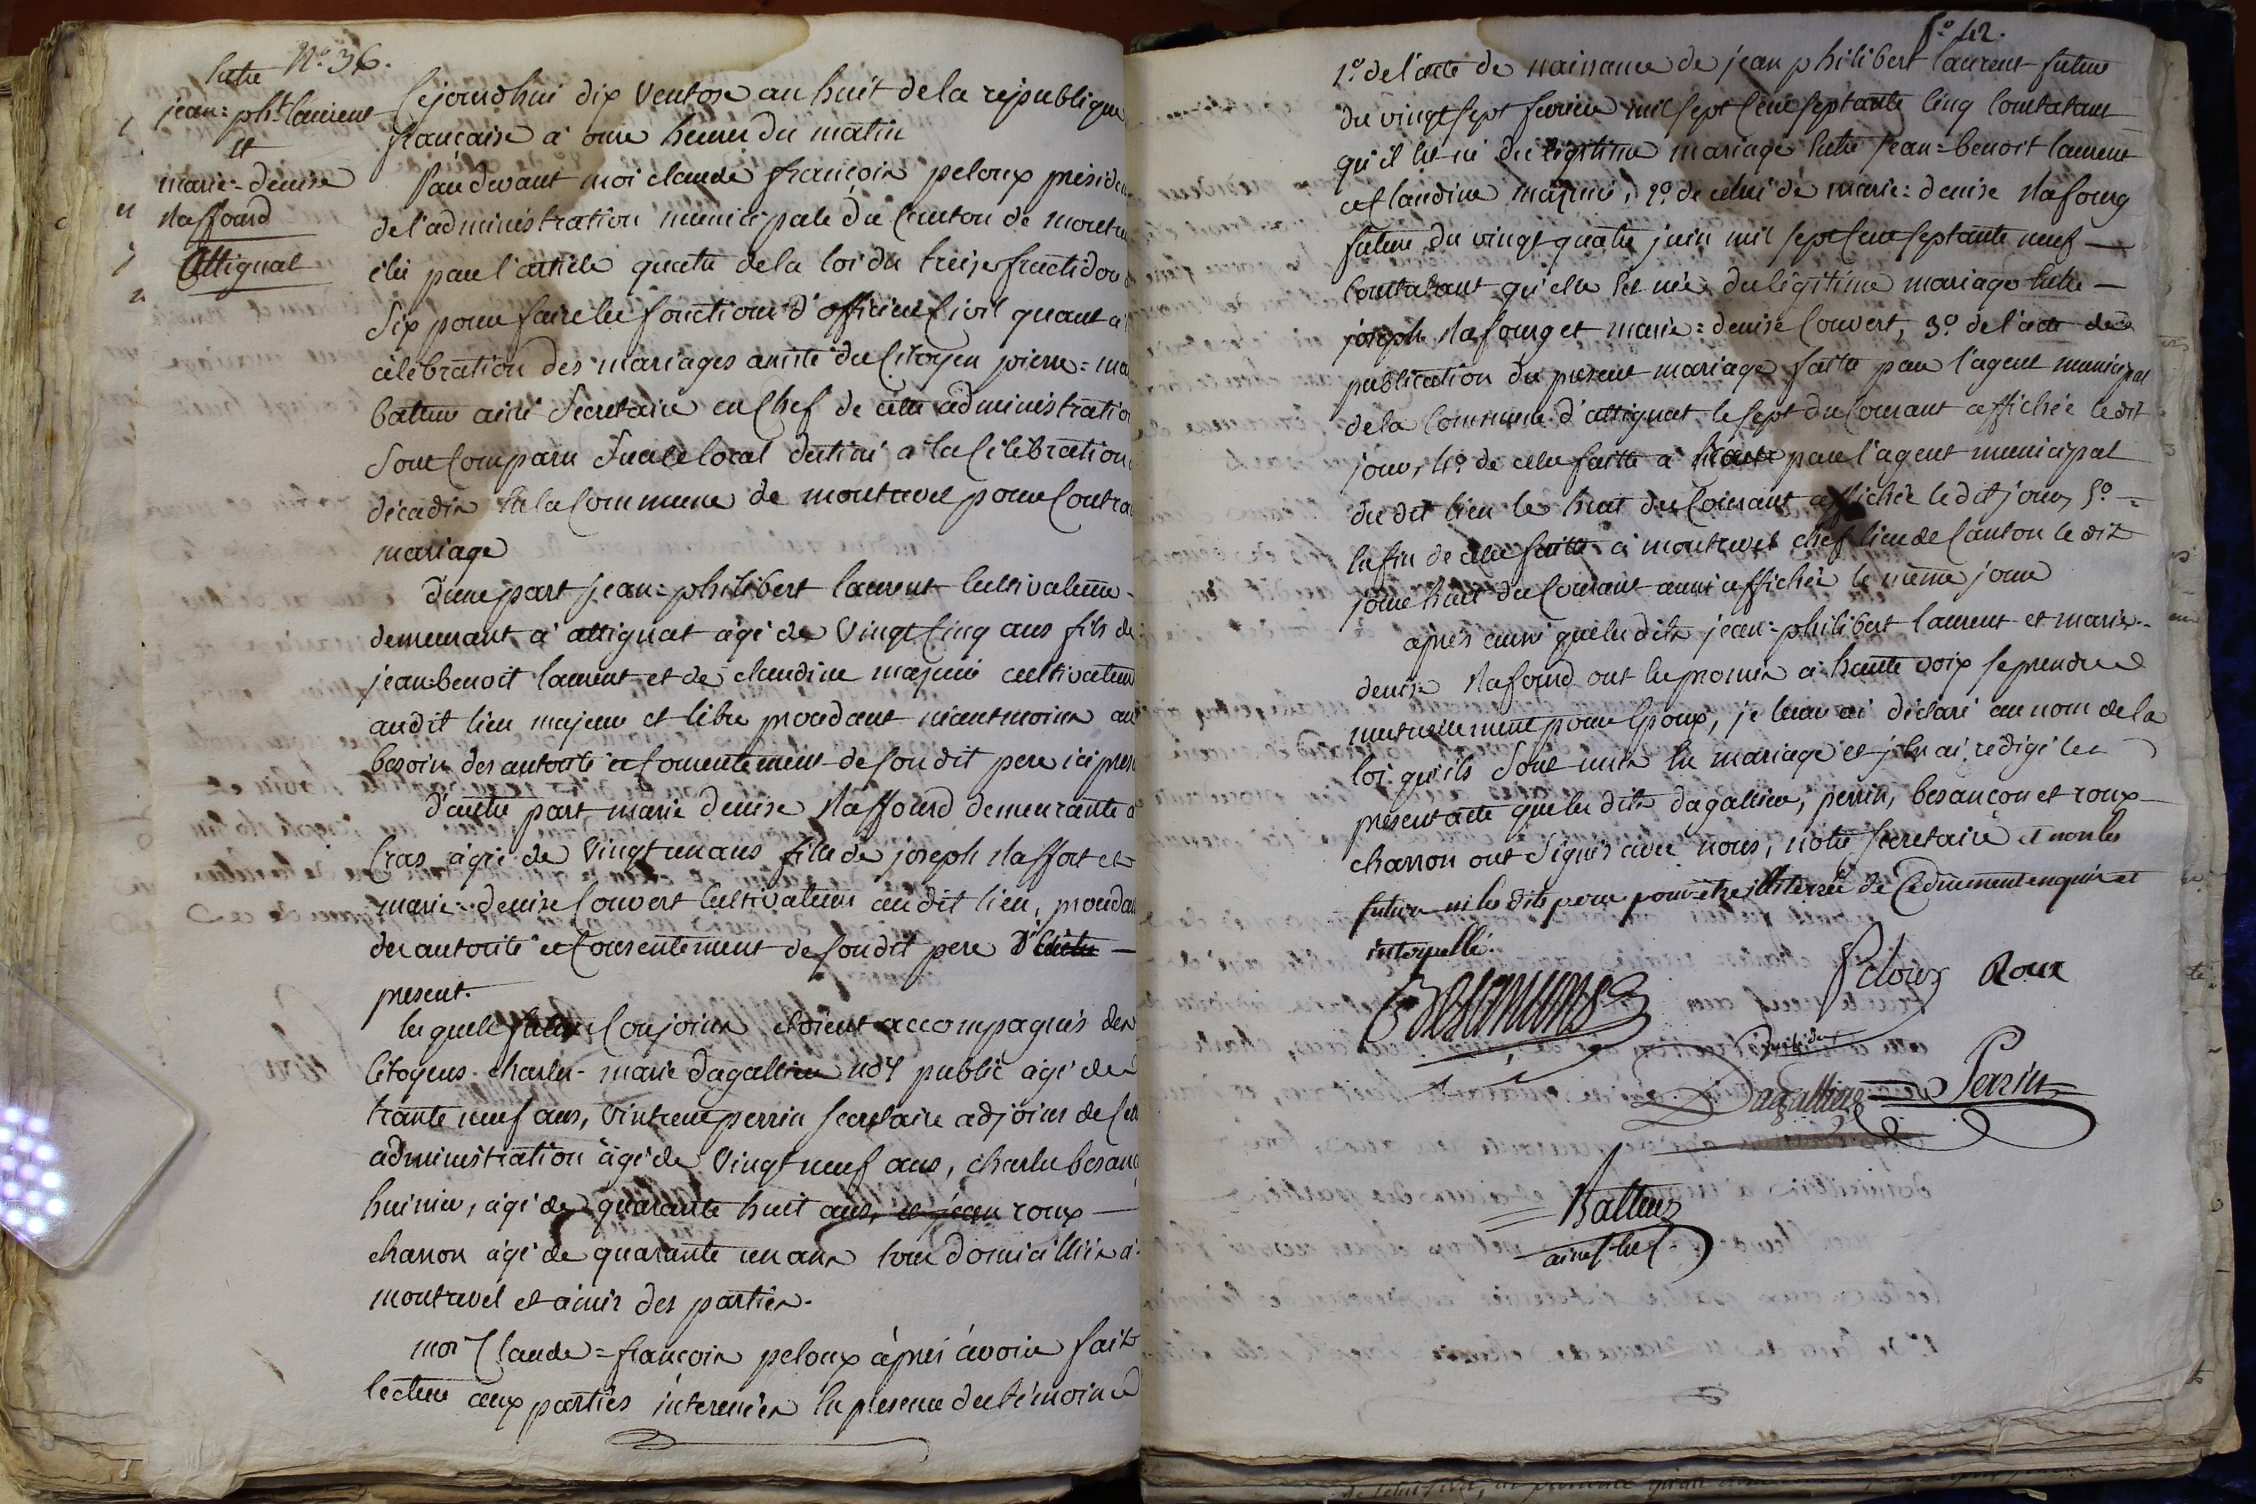 Entre N° 36.
jean=pht laurent
et
marie=denise
Naffourd
Attignat
Cejourdhui dix ventose an huit de la republique
francaise a onze heures du matin
Pardevant moi claude françois peloux presiden
de l'administration municipale du Canton de montre
élu par l'article quatre de la loi du treize fructidor
Six pour faire les fonctions d'officier Civil quant a
célébration des mariages assisté du Citoyen pierre=ma
batteur ainé Secretaire en Chef de cette administratio
Sont Comparu dans le local destiné a la Célébration
décadis en la Commune de montrevel pour Contra
mariage
d'une part jean=philibert laurent Cultivateur
demeurant a attignat agé de vingt Cinq ans fils de
jean=benoit laurent et de claudine cultivateur
audit lieu majeur et libre procedant néantmoins au
besoin des autorité et Consentement de Son dit pere ici prese
d'autre part marie denise Naffourd demeurante a
Cras agée de vingt un ans fille de joseph Naffort et
marie=denise Couvert Cultivateurs au dit lieu, procedan
des autorité et Consentement de Son dit pere
present.
les quels futurs Conjoints etoient accompagnés des
Citoyens charles=marie dagallier not. public agé de
trante neuf ans, vincent perrin Secretaire adjoint de Cett
administration agé de vingt neuf ans, charles besanç
huissier, agé de quarante huit ans, et jean roux
charron agé de quarante un ans tous domicilliés a
montrevel et amis des parties.
moi Claude=françois peloux après avoir fait
lecture aux parties interessées en presence des témoins
f° 42.
1° de l'acte de naissance de jean philibert laurent futur
du vingt sept fevrier mil sept Cent septante Cinq Constatant
qu'il est né du légitime mariage Entre jean=benoit laurent
et Claudine, 2° de celui de marie=denise Nafourg
future du vingt quatre juin mil sept Cent septante neuf
Constatant qu'elle est née du légitime mariage Entre
joseph Nafourg et marie=denise Couvert, 3° de l'acte de
publication du présent mariage faitte par l'agent municipal
de la Commune d'attignat le sept du Courant affichée le dit
jour, 4° de celle faitte a par l'agent municipal
du dit lieu le huit du Courant affichée le dit jour, 5°
Enfin de celle faitte a montrevel chef lieu de Canton le dit
jour huit du Courant aussi affichée le même jour
après aussi que les dits jean=philibert laurent et marie=
denise Nafourd ont Eu promis a haute voix se prendre
mutuellement pour Epoux, je leur ai déclaré au nom de la
loi qu'ils Sont unis En mariage et j'en ai rédigé le
présent acte que les dits dagallier, perrin, besançon et roux
charron ont Signés avec nous, notre Secretaire et non les
futurs ni les dits peres pour être illiterés de Ce duement enquis et
interpellé.
Besançons
Peloux
président
Roux
Dagallier
Perrin
Batteur
ainé S. en chef